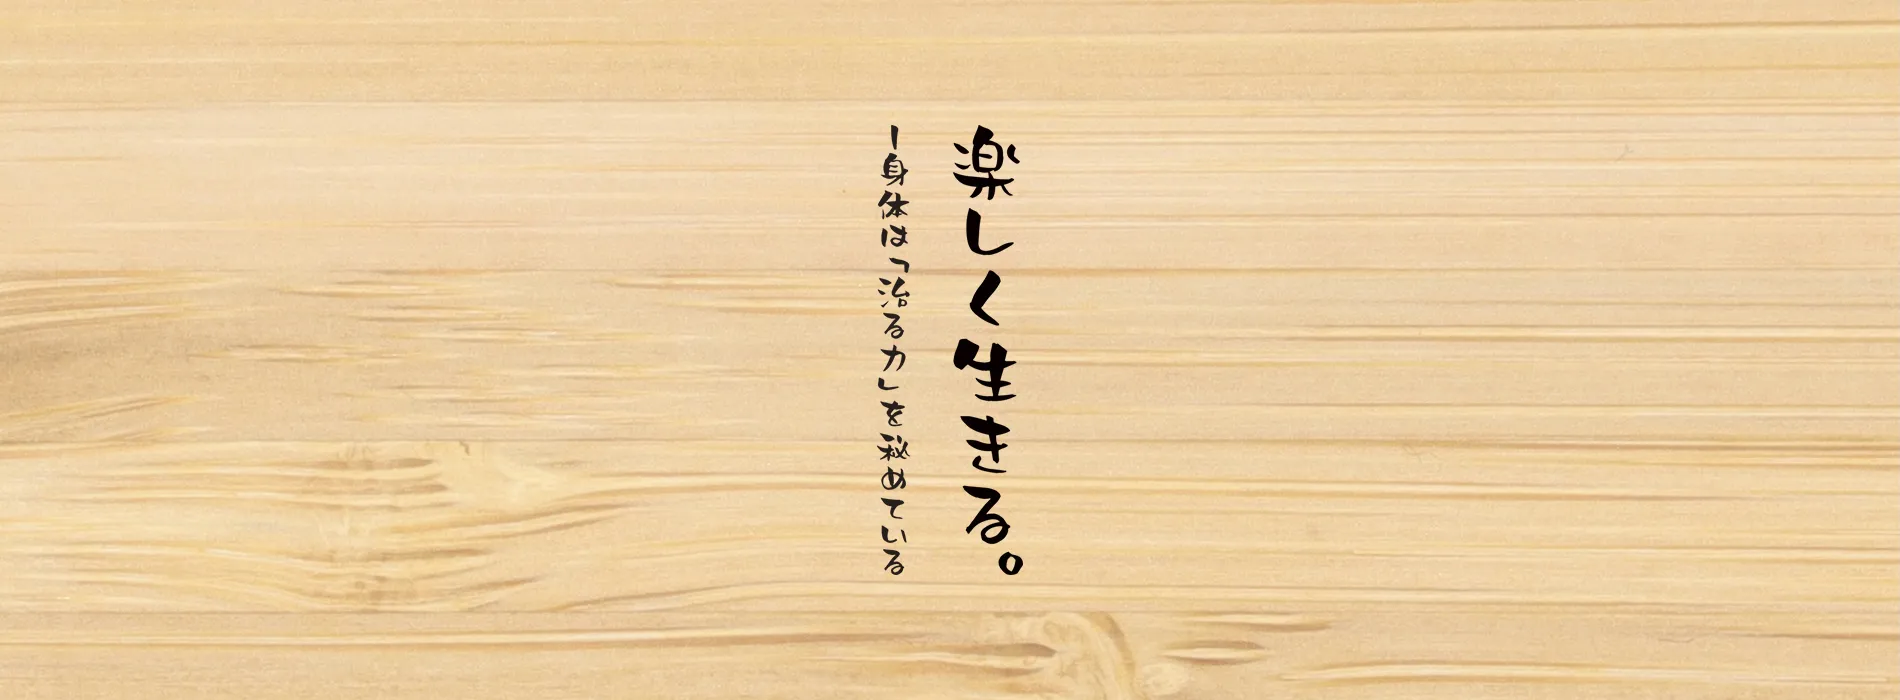 楽しく生きる。
ー身体は「治る力」を秘めている